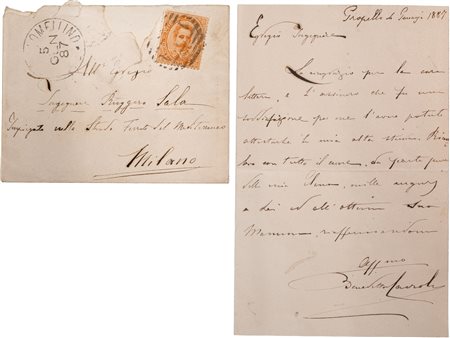 LOMELLINO
5
7
87
All' Egregio
Ingegnere Ruggero Sala
Impiegato nelle Strade Ferrate del Mediterraneo
Milano
Gropello di 1887
Egregio Ingegnere
La ringrazio per la cara
lettera e l'assicuro che fu una
soddisfazione per me l'aver potuto
attestarle la mia alta stima.
con tutto il cuore, da parte pure
della mia mille auguri
a Lei ed all'ottima Sua
Mamma, raffermandomi
Aff.mo
Benedetto Cairoli